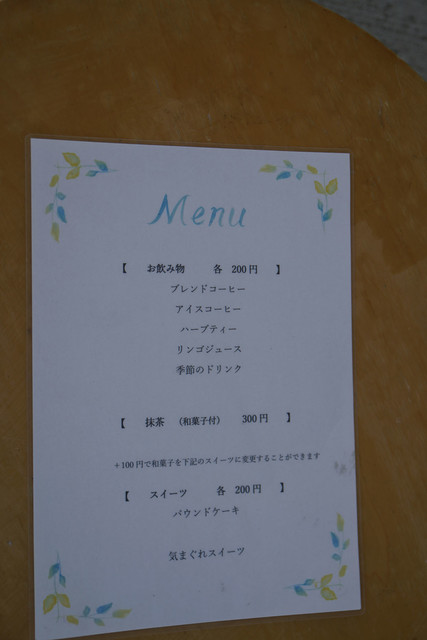 Menu
【 お飲み物 各 200円 】
ブレンドコーヒー
アイスコーヒー
ハーブティー
リンゴジュース
季節のドリンク
【 抹茶 （和菓子付） 300円 】
＋100円で和菓子を下記のスイーツに変更することができます
【 スイーツ 各 200円 】
パウンドケーキ
気まぐれスイーツ